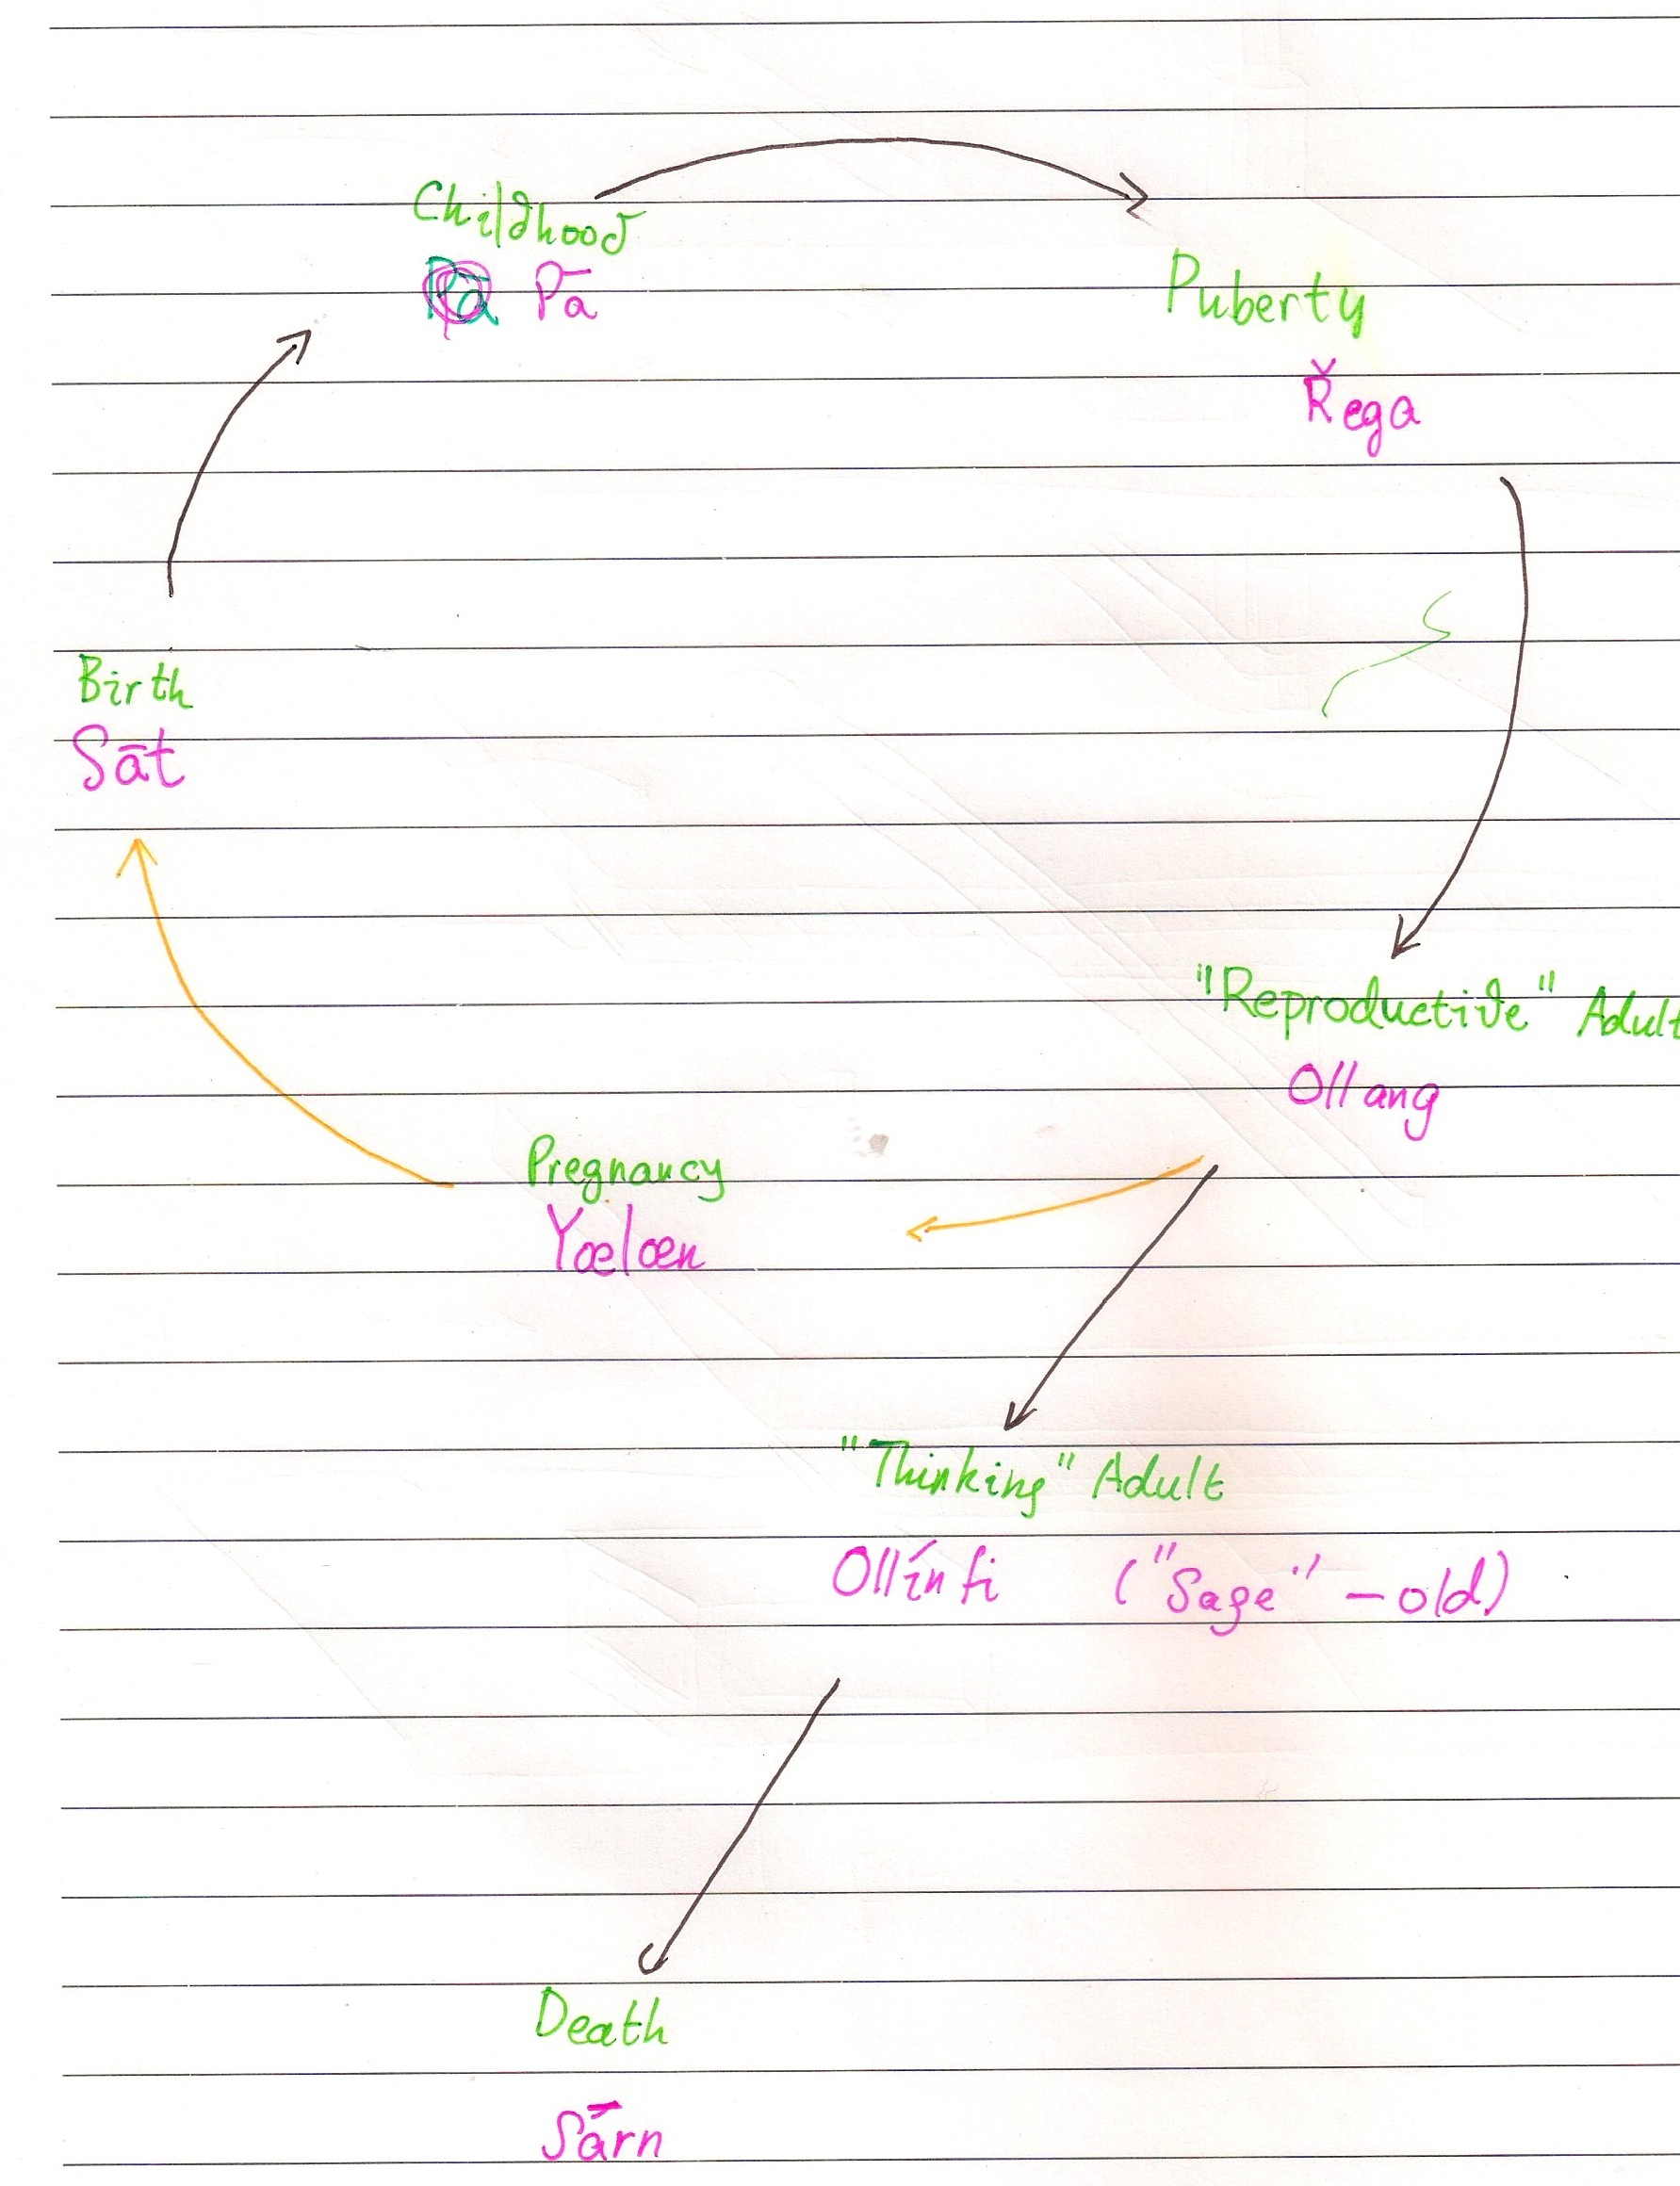 Childhood
Pā
Puberty
Řega
Birth
Sāt
"Reproductive" Adult
Ollang
Pregnancy
Yœlœn
"Thinking" Adult
Ollínfi ("Sage" - old)
Death
Sārn